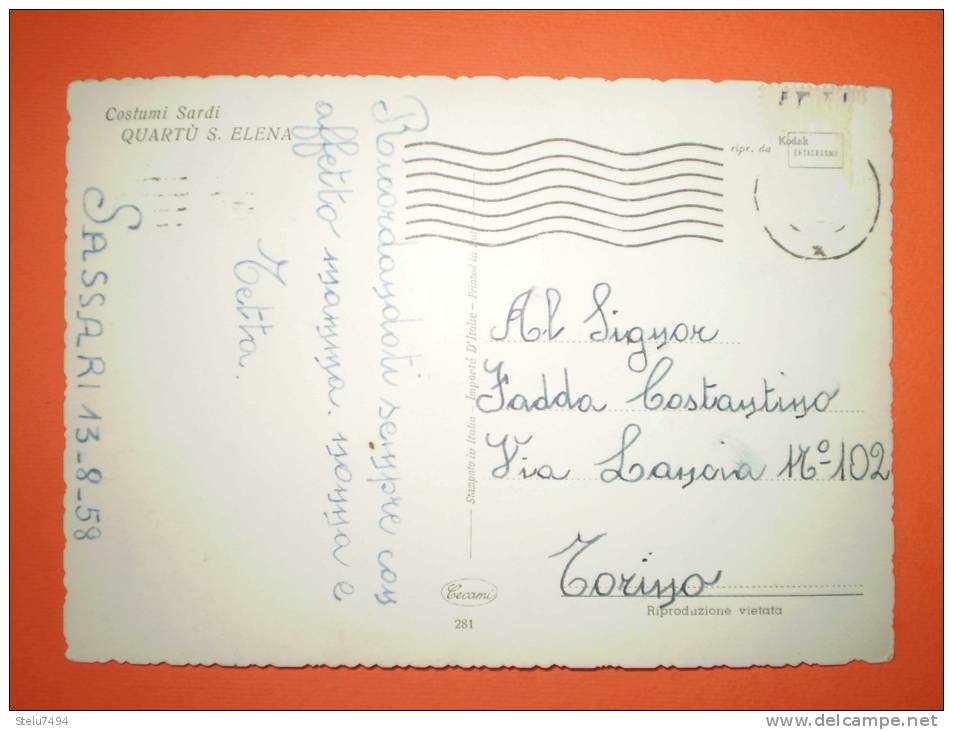 Costumi Sardi
QUARTÙ S. ELENA
SASSARI 13-8-58
Ricordandoti sempre con
affetto mamma. nonna e
Tetta.
ripr. da Kodak
EKTACHROME
Stampato in Italia - Importé D'Italie - Printed in Italy
Al Signor
Fadda Costantino
Via Lancia Nº 102
Torino
Riproduzione vietata
Cecami
281
Stelu7494
www.delcampe.net